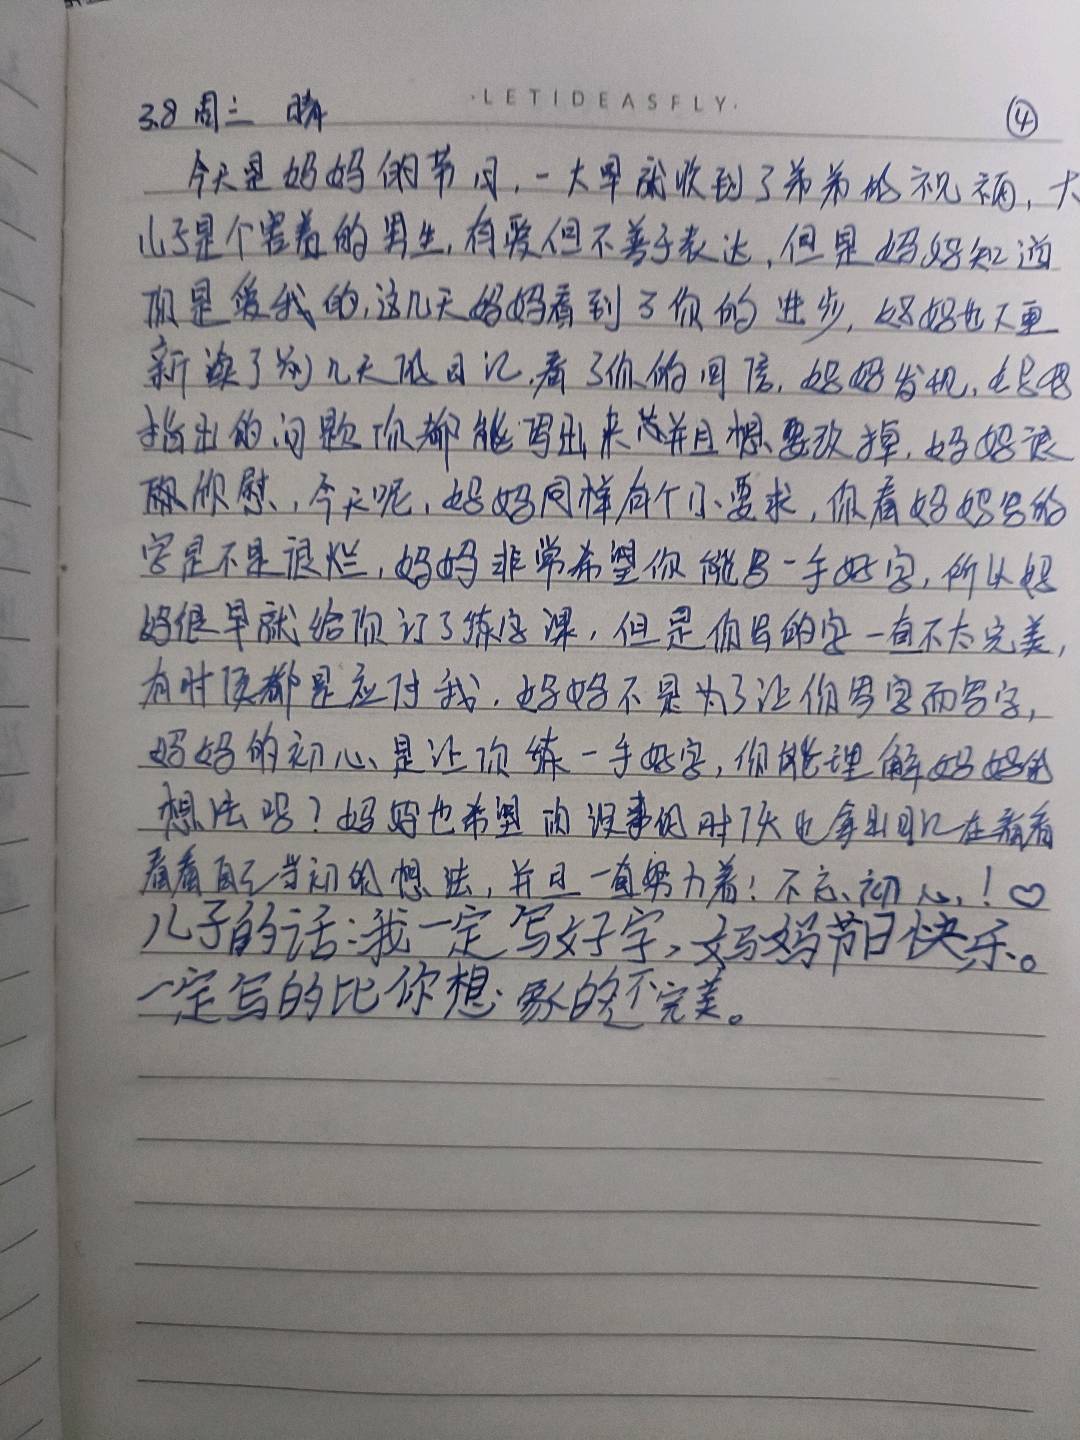 ·LETIDEASFLY·
3.8 周三 晴 ④
今天是妈妈的节日,一大早就收到了弟弟的祝福,大
儿子是个害羞的男生,有爱但不善于表达,但是妈妈知道
你是爱我的,这几天妈妈看到了你的进步,妈妈也不更
新换了几天日记,看了你的回信,妈妈发现,
指出的问题你都能写出来并且想要改掉,妈妈很
欣慰,今天呢,妈妈同样有个小要求,你看妈妈写的
字是不是很烂,妈妈非常希望你能写一手好字,所以妈
妈很早就给你订了练字课,但是你写的字一直不太完美,
有时候都是应付我,妈妈不是为了让你写字而写字,
妈妈的初心是让你练一手好字,你能理解妈妈的
想法吗?妈妈也希望你没事的时候也拿出日记在看看
看看自己当初的想法,并且一直努力着!不忘初心!♡
儿子的话:我一定写好字,妈妈节日快乐。
一定写的比你想象的还完美。